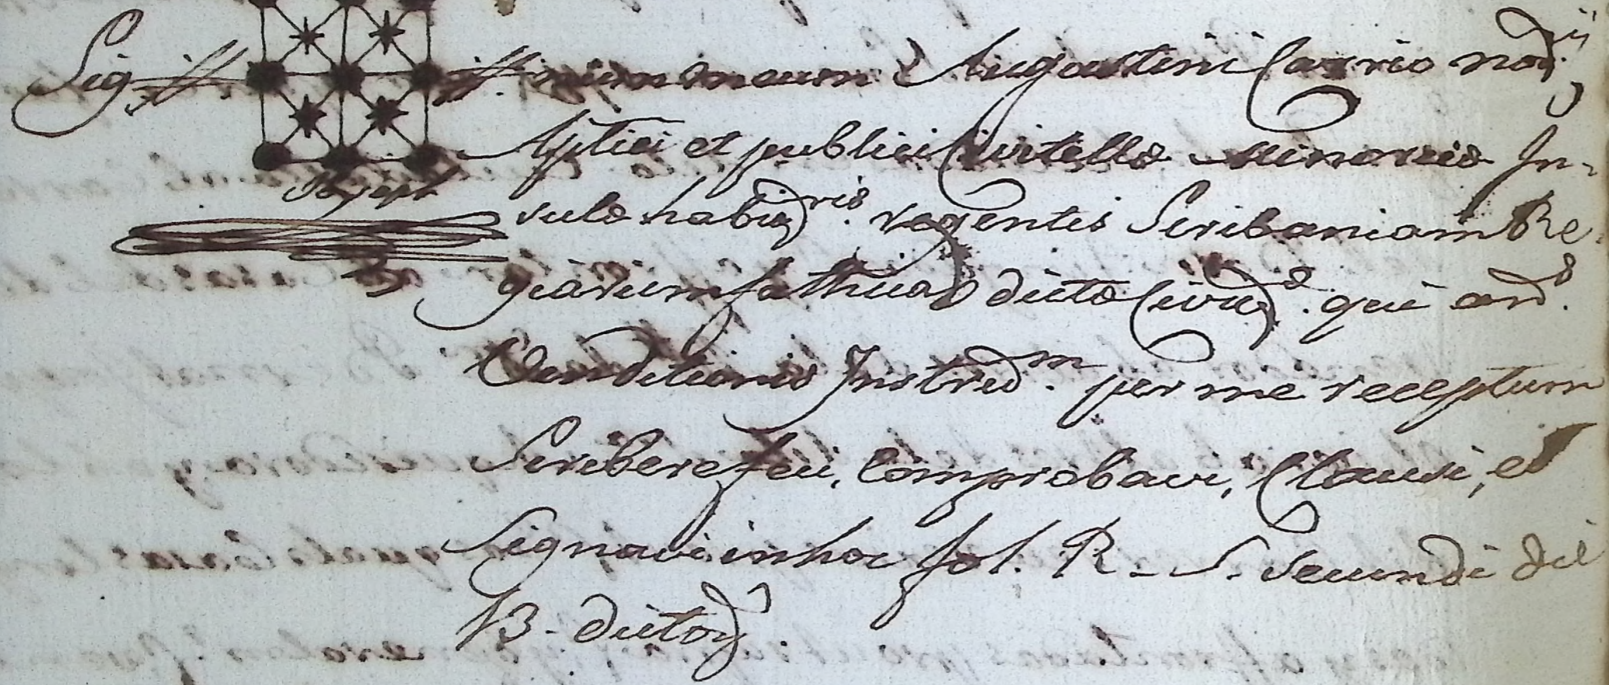 Sig num meum Augustini Carrio notrij
Aptici et publici Civitellæ Minoricæ In-
sulæ habitris. regentis Scribaniam Re
giarum dictæ Civitæ. qui
Venditionis Instrum. per me receptum
Scribere feci, Comprobavi, Clausi, et
Signavi in hoc fol. R. S. Secundi del
13. dictor